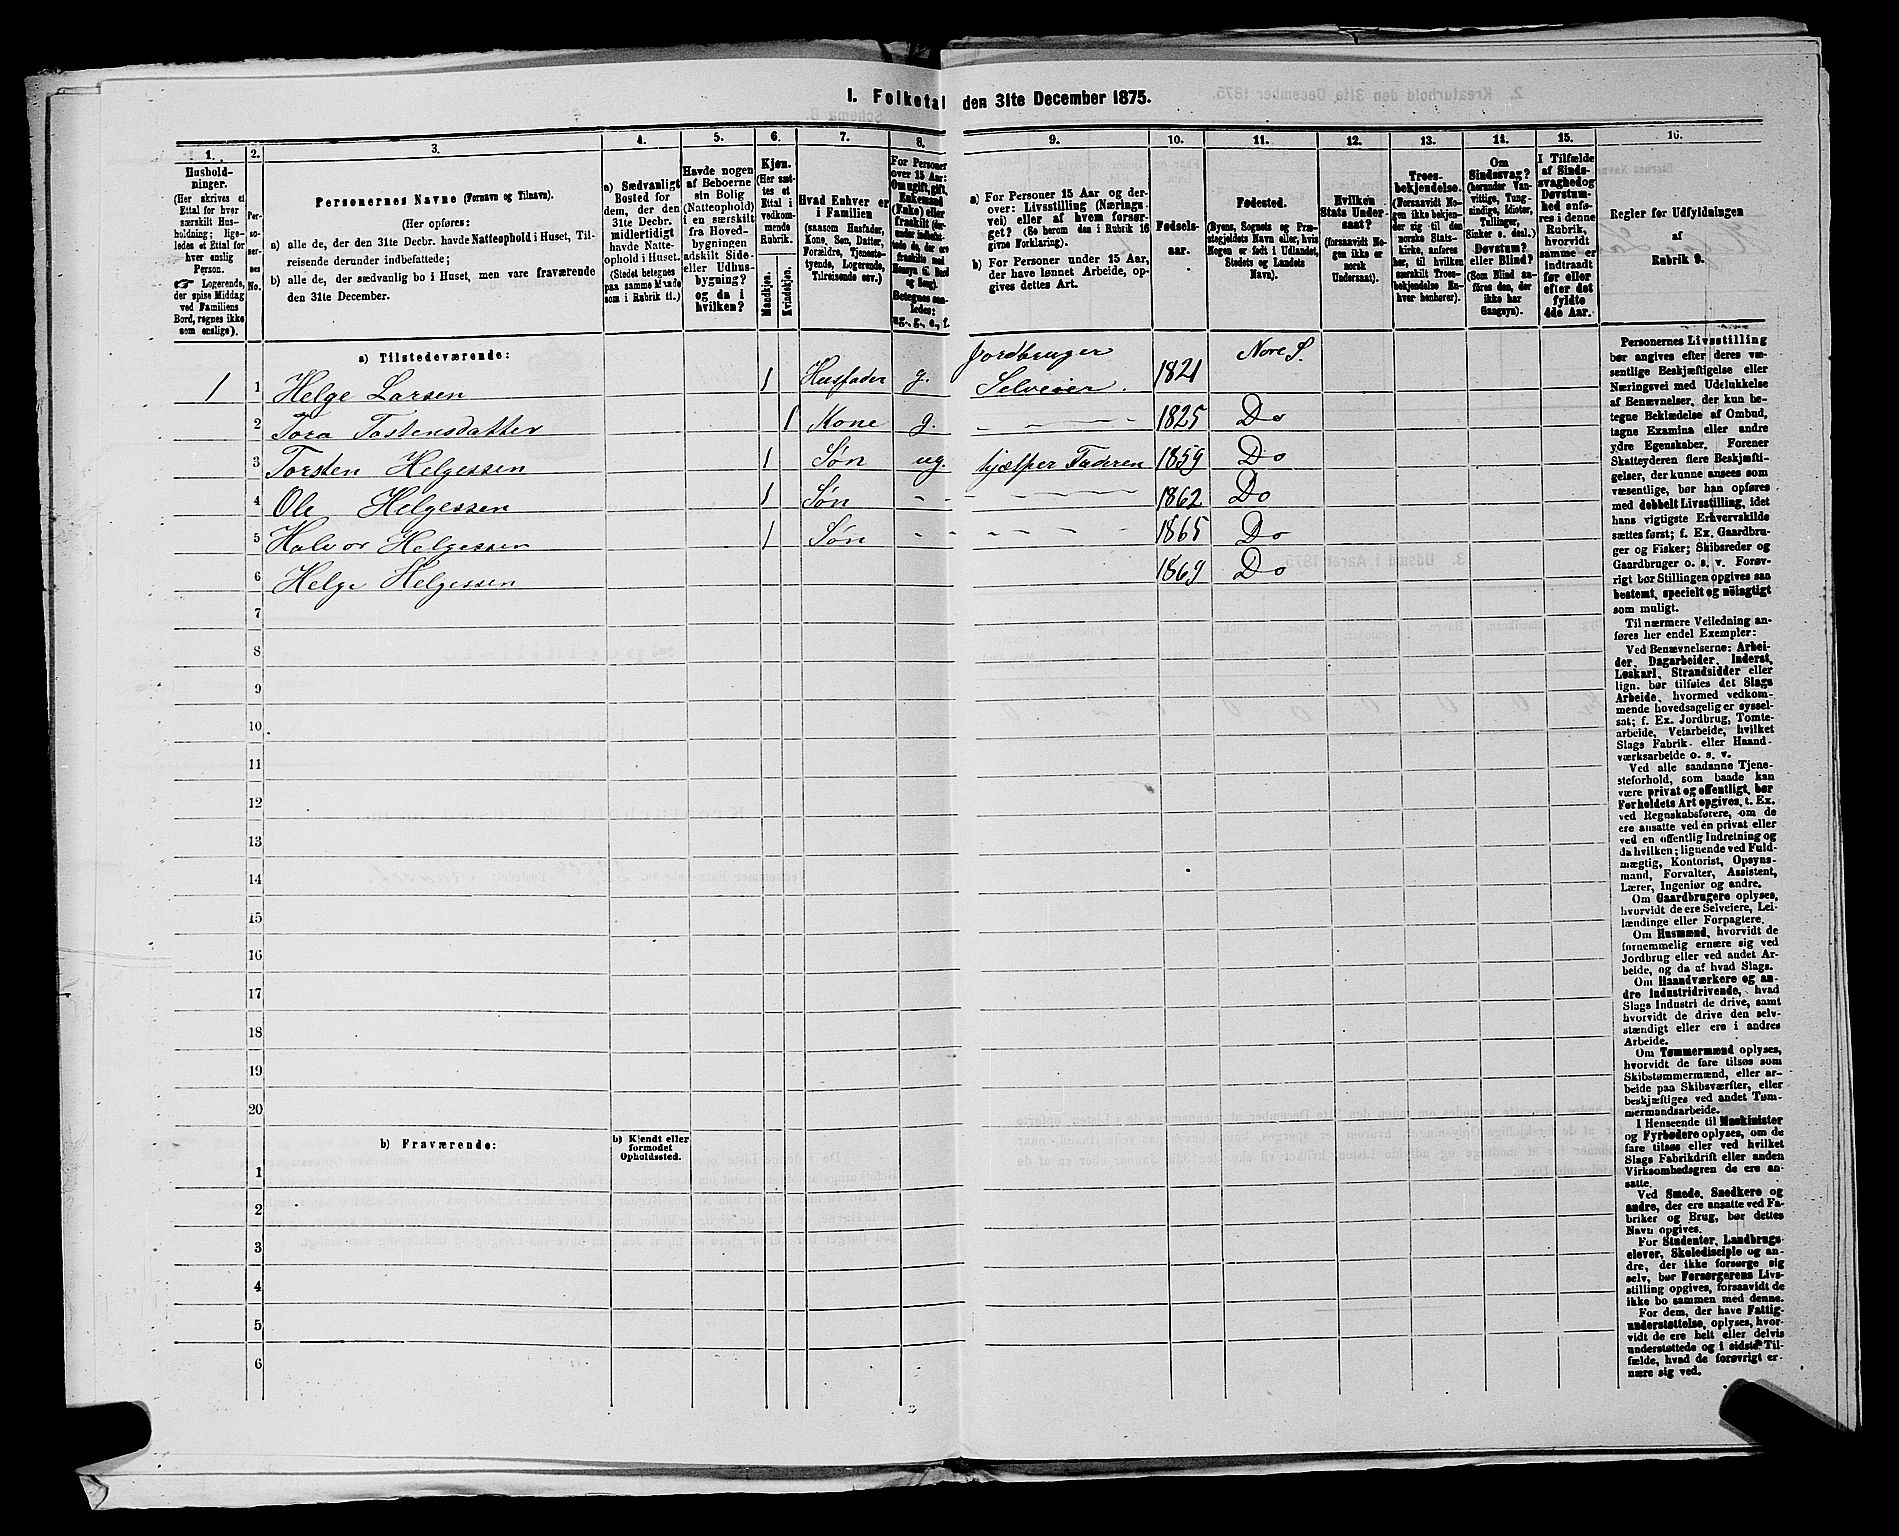 1. Folketal den 31te December 1875.
1. 2. 3. 4. 5. 6. 7. 8. 9. 10. 11. 12. 13. 14. 15. 16.
Hushold-
ninger.
(Her skrives et
Ettal for hver
særskilt Hus-
holdning; lige-
ledes et Ettal for
hver enslig
Person.
Logerende,
der spise Middag
ved Familiens
Bord, regnes ikke
som enslige).
Per-
so-
ner-
nes
No.
Personernes Navne (Fornavn og Tilnavn).
(Her opføres:
a) alle de, der den 31te Decbr. havde Natteophold i Huset, Til-
reisende derunder indbefattede;
b) alle de, der sædvanlig bo i Huset, men vare fraværende
den 31te December.
a) Sædvanligt
Bosted for
dem, der den
31te Decbr.
midlertidigt
havde Natte-
ophold i Huset.
(Stedet betegnes
paa samme Maade
som i Rubrik 11.)
Havde nogen
af Beboerne
sin Bolig
(Natteophold)
i en særskilt
fra Hoved-
bygningen
adskilt Side-
eller Udhus-
bygning?
og da i
hvilken?
Kjøn.
(Her sæt-
tes et
Ettal i
vedkom-
mende
Rubrik.
Mandkjøn.
Kvindekjøn.
Hvad Enhver er
i Familien
(saasom Husfader,
Kone, Søn, Datter,
Forældre, Tjeneste-
tyende, Logerende,
Tilreisende osv.)
For Personer
over 15 Aar:
Om ugift, gift,
Enkemand
(Enke) eller
fraskilt
Betegnes saa-
ledes:
ug., g., e., f.
a) For Personer 15 Aar og der-
over: Livsstilling (Nærings-
vei) eller af hvem forsør-
get? (Se herom den i Rubrik 16
givne Forklaring).
b) For Personer under 15 Aar,
der have lønnet Arbeide, op-
gives dettes Art.
Fødsels-
aar.
Fødested.
(Byens, Sognets og Præ-
stegjeldets Navn eller, hvis
Nogen er født i Udlandet,
Stedets og Landets
Navn).
Hvilken
Stats Under-
saat?
(forsaavidt No-
gen ikke er
norsk
Undersaat).
Troes-
bekjendelse.
(Forsaavidt No-
gen ikke bekjen-
der sig til den
norske Stats-
kirke, anføres
her, til hvilken
særskilt Troes-
bekjendelse En-
hver henhører).
Om
Sindssvag?
(herunder Van-
vittige, Tung-
sindige, Idioter,
Tullinger,
Sinker o. desl.)
Døvstum?
eller Blind?
(Som Blind an-
føres den, der
ikke har
Gangsyn).
I Tilfælde
af Sinds-
svaghed og
Døvstum-
hed anfø-
res i denne
Rubrik,
hvorvidt
samme er
indtraadt
før eller
efter det
fyldte
4de Aar.
Regler for Udfyldningen
af
Rubrik 9.
a) Tilstedeværende:
1 1 Helge Larsen 1 Husfader g. Jordbruger Selveier. 1821 Nore S.
2 Tora Tostensdatter 1 Kone g. - - - - 1825 Do
3 Torsten Helgessen 1 Søn ug. hjælper Faderen 1859 Do
4 Ole Helgessen 1 Søn - - - - - - 1862 Do
5 Halvor Helgessen 1 Søn - - - - - 1865 Do
6 Helge Helgessen 1869 Do
7
8
9
10
11
12
13
14
15
16
17
18
19
20
b) Fraværende:
b) Kjendt eller
formodet
Opholdssted.
1
2
3
4
5
6
Personernes Livsstilling
bør angives efter deres væ-
sentlige Beskjæftigelse eller
Næringsvei med Udelukkelse
af Benævnelser, der kun be-
tegne Beklædelse af Ombud,
tagne Examina eller andre
ydre Egenskaber. Forener
Skatteyderen flere Beskjæfti-
gelser, der kunne ansees som
væsentlige, bør han opføres
med dobbelt Livsstilling, idet
hans vigtigste Erhvervskilde
sættes først; f. Ex. Gaardbru-
ger og Fisker; Skibsreder og
Gaardbruger o. s. v. Forøv-
rigt bør Stillingen opgives saa
bestemt, specielt og nöiagtigt
som muligt.
Til nærmere Veiledning an-
føres her endel Exempler:
Ved Benævnelserne: Arbei-
der, Dagarbeider, Inderst,
Løskarl, Strandsidder eller
lign. bør tilføies det Slags
Arbeide, hvormed vedkom-
mende hovedsagelig er syssel-
sat; f. Ex. Jordbrug, Tomte-
arbeide, Veiarbeide, hvilket
Slags Fabrik- eller Haand-
værksarbeide o. s. v.
Ved alle saadanne Tjene-
steforhold, som baade kan
være privat og offentligt, bør
Forholdets Art opgives, t. Ex.
ved Regnskabsførere, om de
ere ansatte ved en privat eller
ved en offentlig Indretning og
da hvilken; lignende ved Fuld-
mægtig, Kontorist, Opsyns-
mand, Forvalter, Assistent,
Lærer, Ingeniør og andre.
Om Gaardbrugere oplyses,
hvorvidt de ere Selveiere, Lei-
lændinge eller Forpagtere.
Om Husmænd, hvorvidt de
fornemmelig ernære sig ved
Jordbrug eller ved andet Ar-
beide, og da af hvad Slags.
Om Haandværkere og an-
dre Industridrivende, hvad
Slags Industri de drive, samt
hvorvidt de drive den selv-
stændigt eller ere i andres
Arbeide.
Om Tømmermænd oplyses,
hvorvidt de fare tilsøs som
Skibstømmermænd, eller ar-
beide paa Skibsværfter, eller
beskjæftiges ved andet Tøm-
mermandsarbeide.
I Henseende til Maskinister
og Fyrbødere oplyses, om de
fare tilsøs eller ved hvilket
Slags Fabrikdrift eller anden
Virksombedsgren de ere an-
satte.
Ved Smede, Snedkere og
andre, der ere ansatte ved Fa-
briker og Brug, bør dettes
Navn opgives.
For Studenter, Landbrugs-
elever, Skoledisciple og an-
dre, der ikke forsørge sig
selv, bør Forsørgerens Livs-
stilling opgives, forsaavidt de
ikke bo sammen med denne.
For dem, der have Fattig-
understøttelse, oplyses, hvor-
vidt de ere helt eller delvis
understøttede og i sidste Til-
fælde, hvad de forøvrigt er-
nære sig ved.